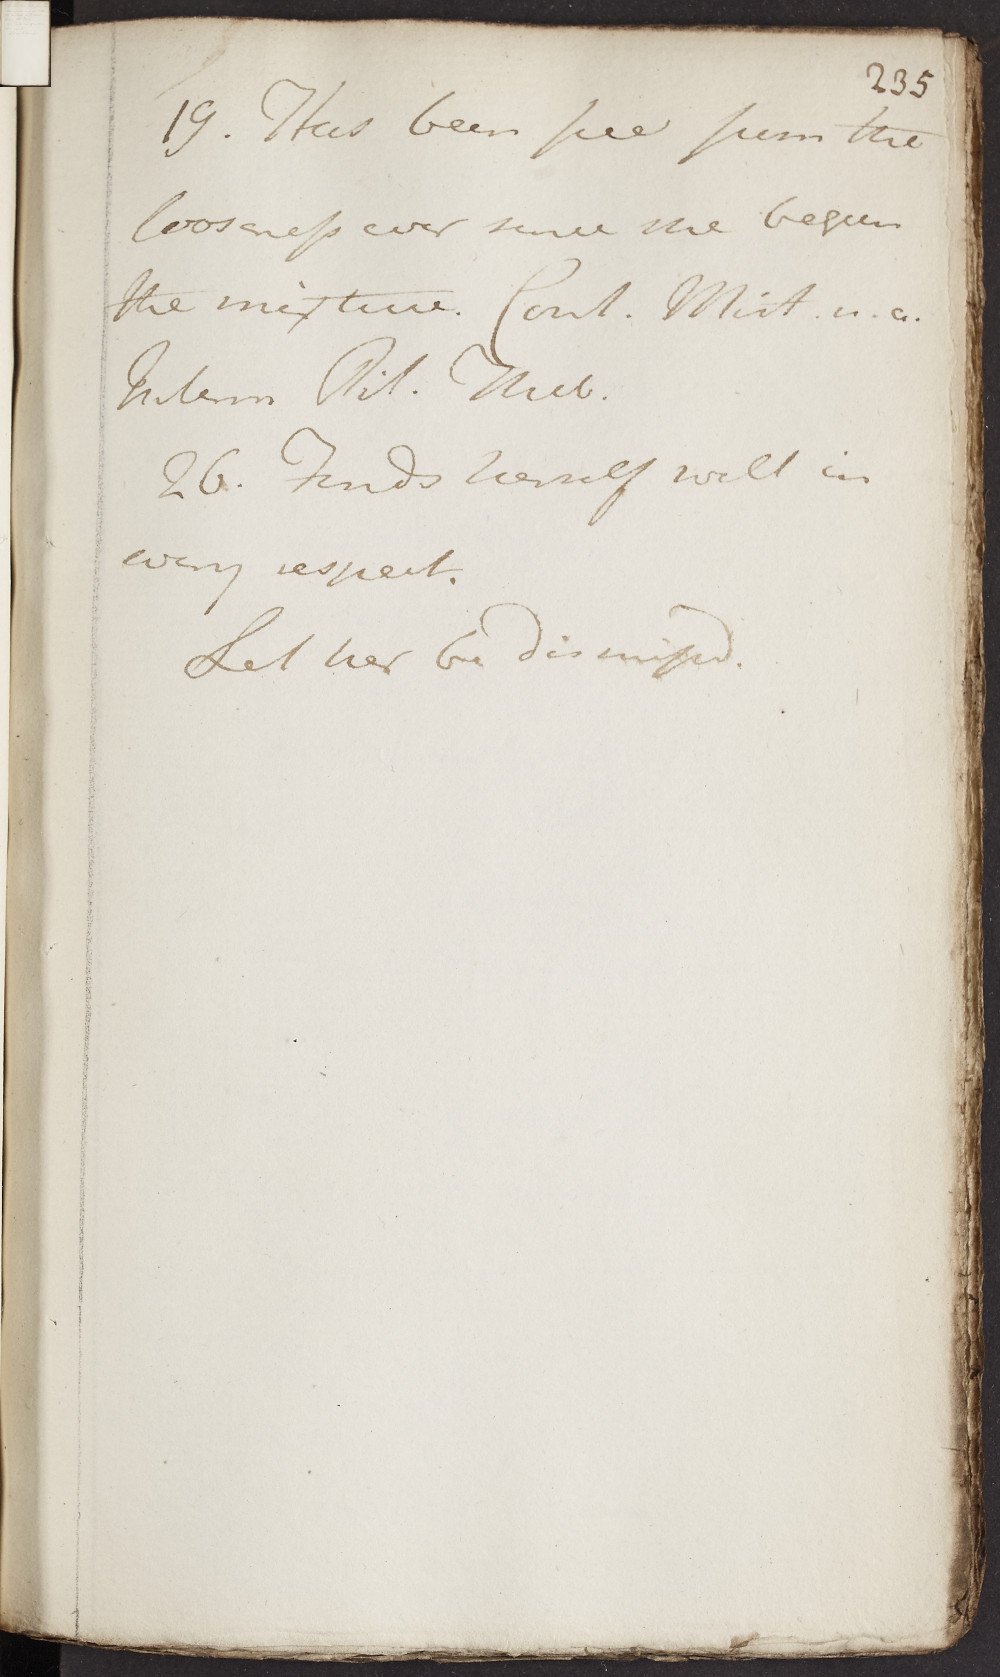 235
19. Has been free from the
looseness ever since she begun
the mixture. Cont. Mist. u. a.
Interm Pil. Theb.
26. Finds herself well in
every respect.
Let her be dismissd.